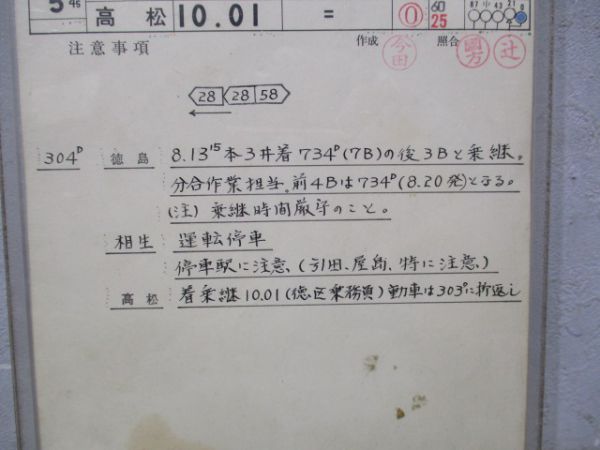 5 46
高松 10.01 =
0
60
25
87 中 43 21 0
注意事項 作成 今田 照合 辻
28 28 58
304D 徳島 8.13 15 本3井着734D(7B)の後3Bと乗継。
分合作業担当。前4Bは734D(8.20発)となる。
(注)乗継時間厳守のこと。
相生 運転停車
停車駅に注意、(引田、屋島、特に注意、)
高松 着乗継10.01(徳区乗務員)動車は303Dに折返し